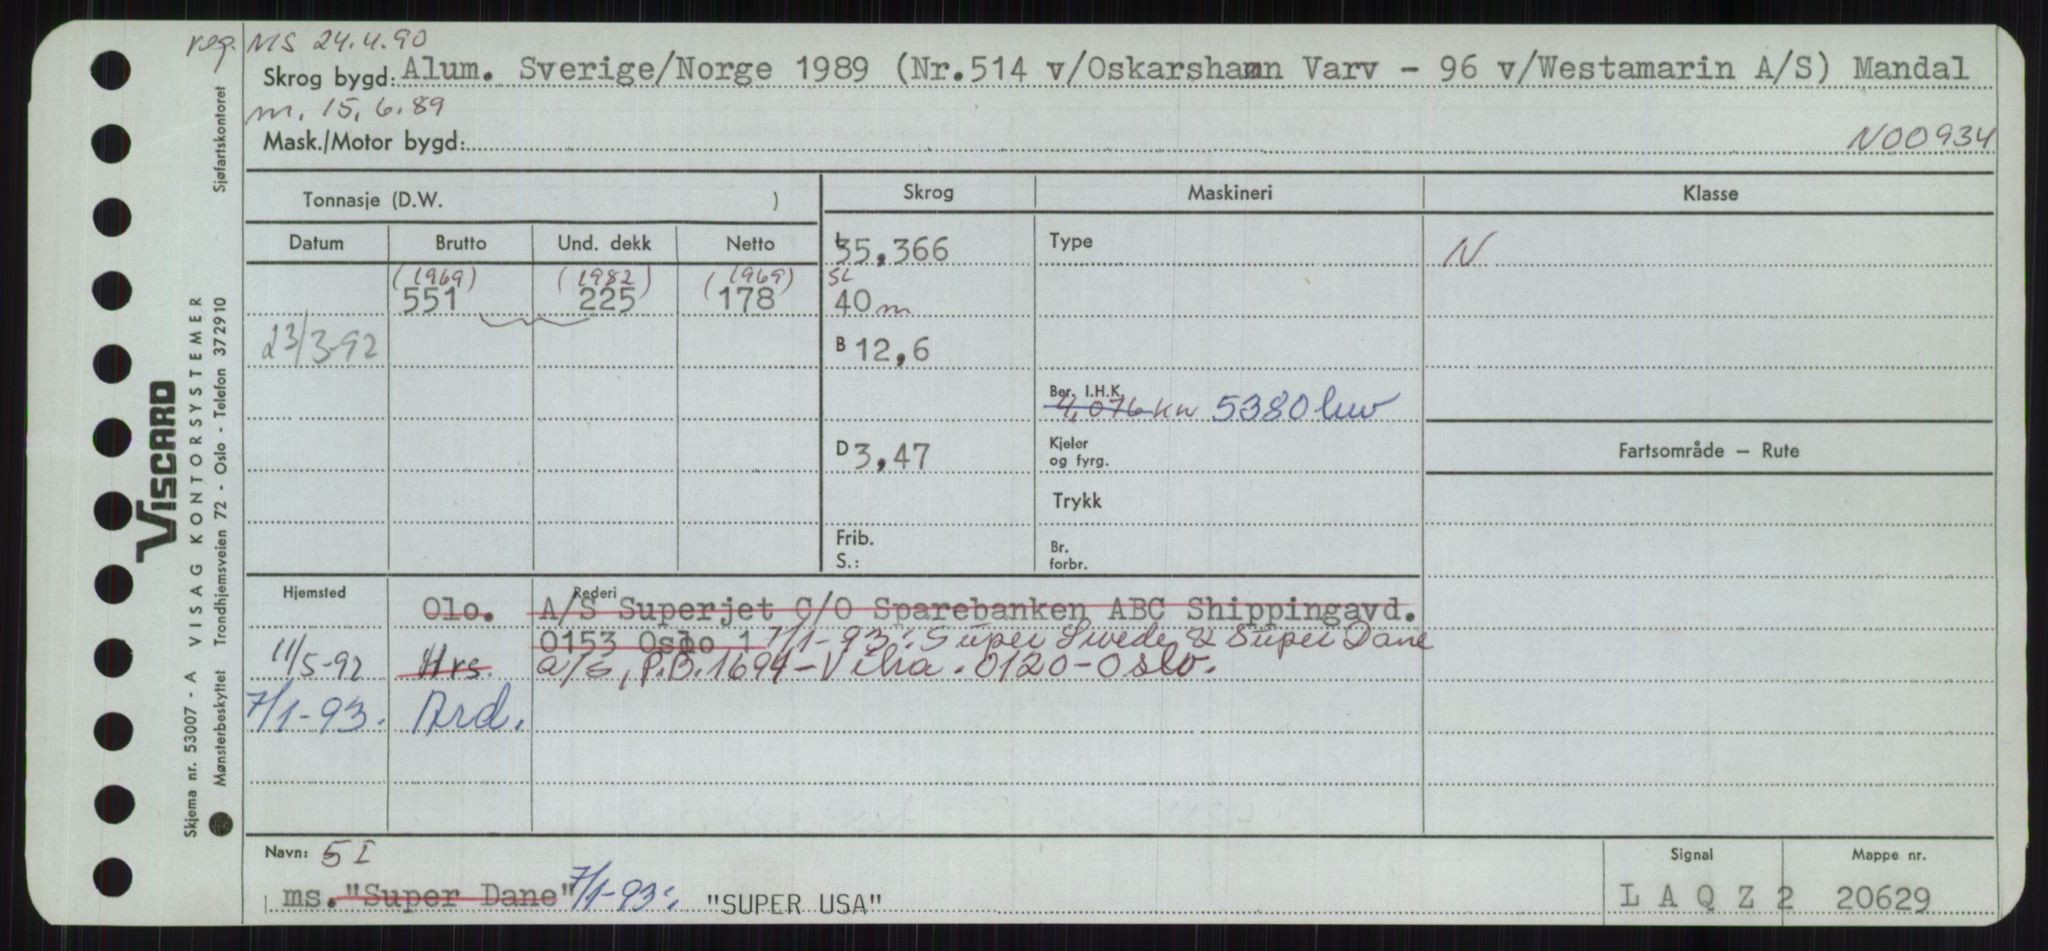 reg. MS 24.4.90
Skrog bygd: Alum. Sverige/Norge 1989 (Nr.514 v/Oskarshamn Varv - 96 v/Westamarin A/S) Mandal
m. 15.6.89
Mask./Motor bygd:
N00934
Tonnasje (D.W. ) Skrog Maskineri Klasse
Datum Brutto Und. dekk Netto L 35,366 Type N
(1969) (1982) (1969) SL
551 225 178 40 m
23/3-92 B 12,6
Ber. I.H.K.
4,076 kw 5380 kw
D 3,47 Kjeler
og fyrg.
Fartsområde – Rute
Trykk
Frib.
S.:
Br.
forbr.
Hjemsted Rederi
Olo. A/S Superjet C/O Sparebanken ABC Shippingavd.
0153 Oslo 1 7/1-93: Super Swede & Super Dane
11/5-92 Hrs. a/s, P.B. 1694 - Vika. 0120 - Oslo.
7/1-93. Ard.
Navn: 5 I Signal Mappe nr.
ms. "Super Dane" 7/1-93: "SUPER USA" L A Q Z 2 20629
VISCARD
Skjema nr. 53007 - A VISAG KONTORSYSTEMER
Mønsterbeskyttet Trondhjemsveien 72 - Oslo - Telefon 372910 Sjøfartskontoret